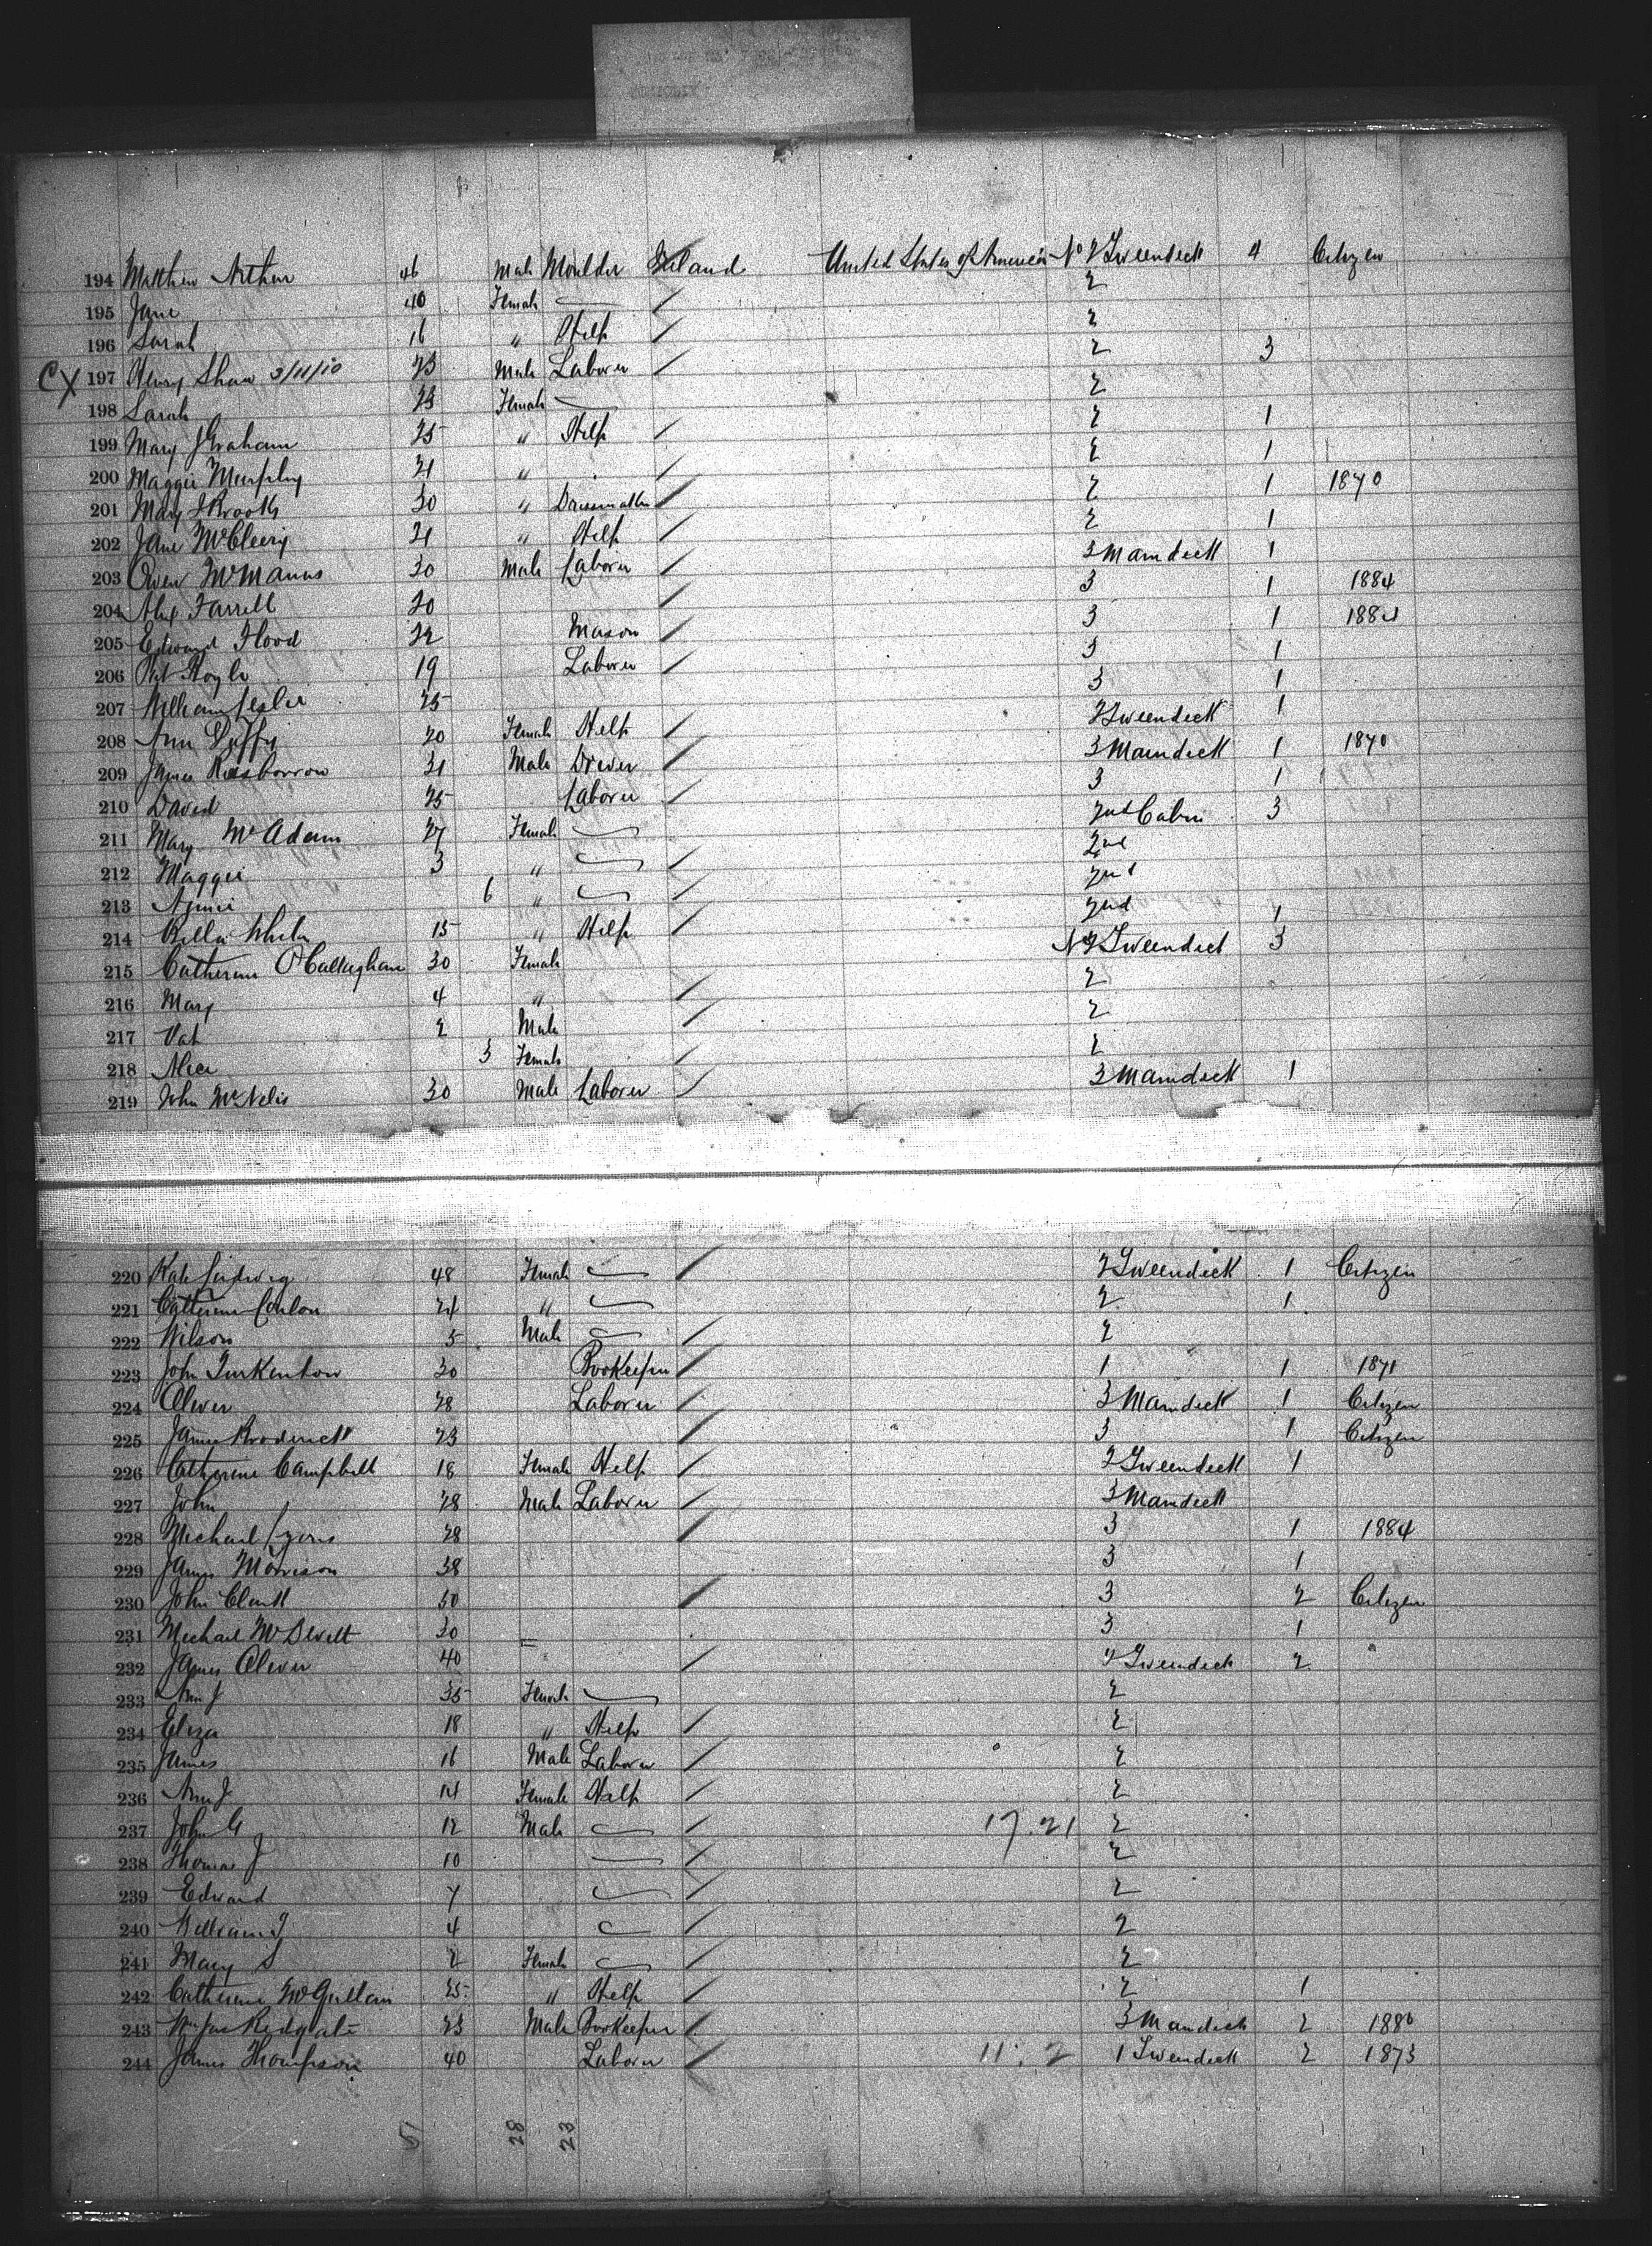 194 Matthew Arthur 46 Male Moulder Ireland United States of America No 2 Tweendeck 4 Citizen
195 Jane 40 Female 2
196 Sarah 16 " Help 2
CX 197 Henry Shaw 3/11/10 23 Male Laborer 2 3
198 Sarah 23 Female 2
199 Mary J Graham 25 " Help 2 1
200 Maggie Murphy 21 " 2 1
201 Mary Brooks 30 " Dressmaker 2 1 1870
202 Jane McCleery 21 " Help 2 1
203 Owen McManus 30 Male Laborer 3 Maindeck 1
204 Alex Farrell 20 3 1 1884
205 Edward Flood 32 Mason 3 1 1884
206 Pat 19 Laborer 3 1
207 William Leslie 25 3 1
208 Ann Duffy 20 Female Help 2 Tweendeck 1
209 James Roxborrow 31 Male Driver 3 Maindeck 1 1870
210 David 25 Laborer 3 1
211 Mary McAdam 27 Female 2nd Cabin 3
212 Maggie 3 " 2nd
213 6 " 2nd
214 15 " Help 2nd 1
215 Catherine O'Callaghan 30 Female No 2 Tweendeck 3
216 Mary 4 " 2
217 Pat 2 Male 2
218 Alice 3 Female 2
219 John McNelis 30 Male Laborer 3 Maindeck 1
220 Kate Ludwig 48 Female 2 Tweendeck 1 Citizen
221 Catherine Conlon 24 " 2 1
222 Wilson 5 Male 2
223 John Turkenton 30 Bookeeper 1 1 1871
224 Oliver 28 Laborer 3 Maindeck 1 Citizen
225 James Broderick 23 3 1 Citizen
226 Catherine Campbell 18 Female Help 2 Tweendeck 1
227 John 28 Male Laborer 3 Maindeck
228 Michael Lyons 28 3 1 1884
229 James Morrison 38 3 1
230 John Clark 50 3 2 Citizen
231 Michael McDevitt 30 3 1
232 James Oliver 40 2 Tweendeck 2
233 Ann J 35 Female 2
234 Eliza 18 " Help 2
235 James 16 Male Laborer 2
236 Ann J 14 Female Help 2
237 John G 12 Male 17.21 2
238 Thomas J 10 2
239 Edward 7 2
240 William J 4 2
241 Mary S 2 Female 2
242 Catherine 25 " Help 2 1
243 Redgate 23 Male Bookeeper 3 Maindeck 2 1886
244 James Thompson 40 Laborer 11.2 1 Tweendeck 2 1873
51 28 23